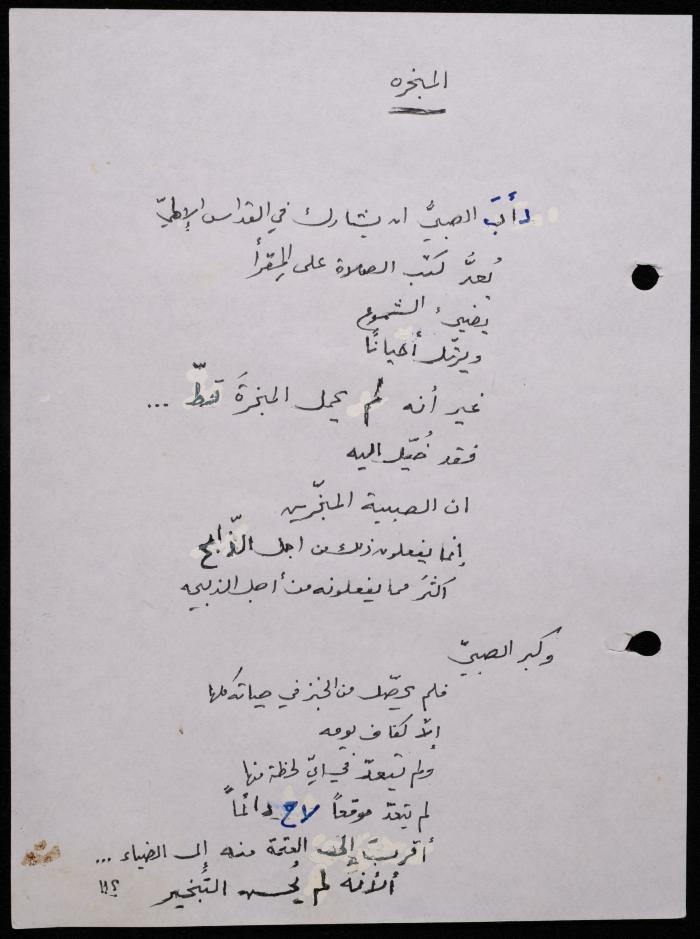 المبخره
دأبَ الصبيُّ ان يشارك في القداس الإلهيّ
يُعدُّ كتب الصلاة على المِقرأ
يضيء الشموع
ويرتّل أحيانًا
غير أنه لم يحمل المبخرةَ قطّ ...
فقد خُيّل اليه
ان الصبية المبخّرين
إنما يفعلون ذلك من اجل الذّابح
اكثرَ مما يفعلونه من أجل الذبيحه
وكبر الصبيّ
فلم يحصّل من الخبز في حياته كلها
إلّا كفاف يومه
ولم يتعدّ في ايّ لحظة منها
لم يتعدّ موقعاً لاح دائماً
أقربَ إلى العتمة منه إلى الضياء ...
ألأنه لم يُحسن التبخير ؟!!